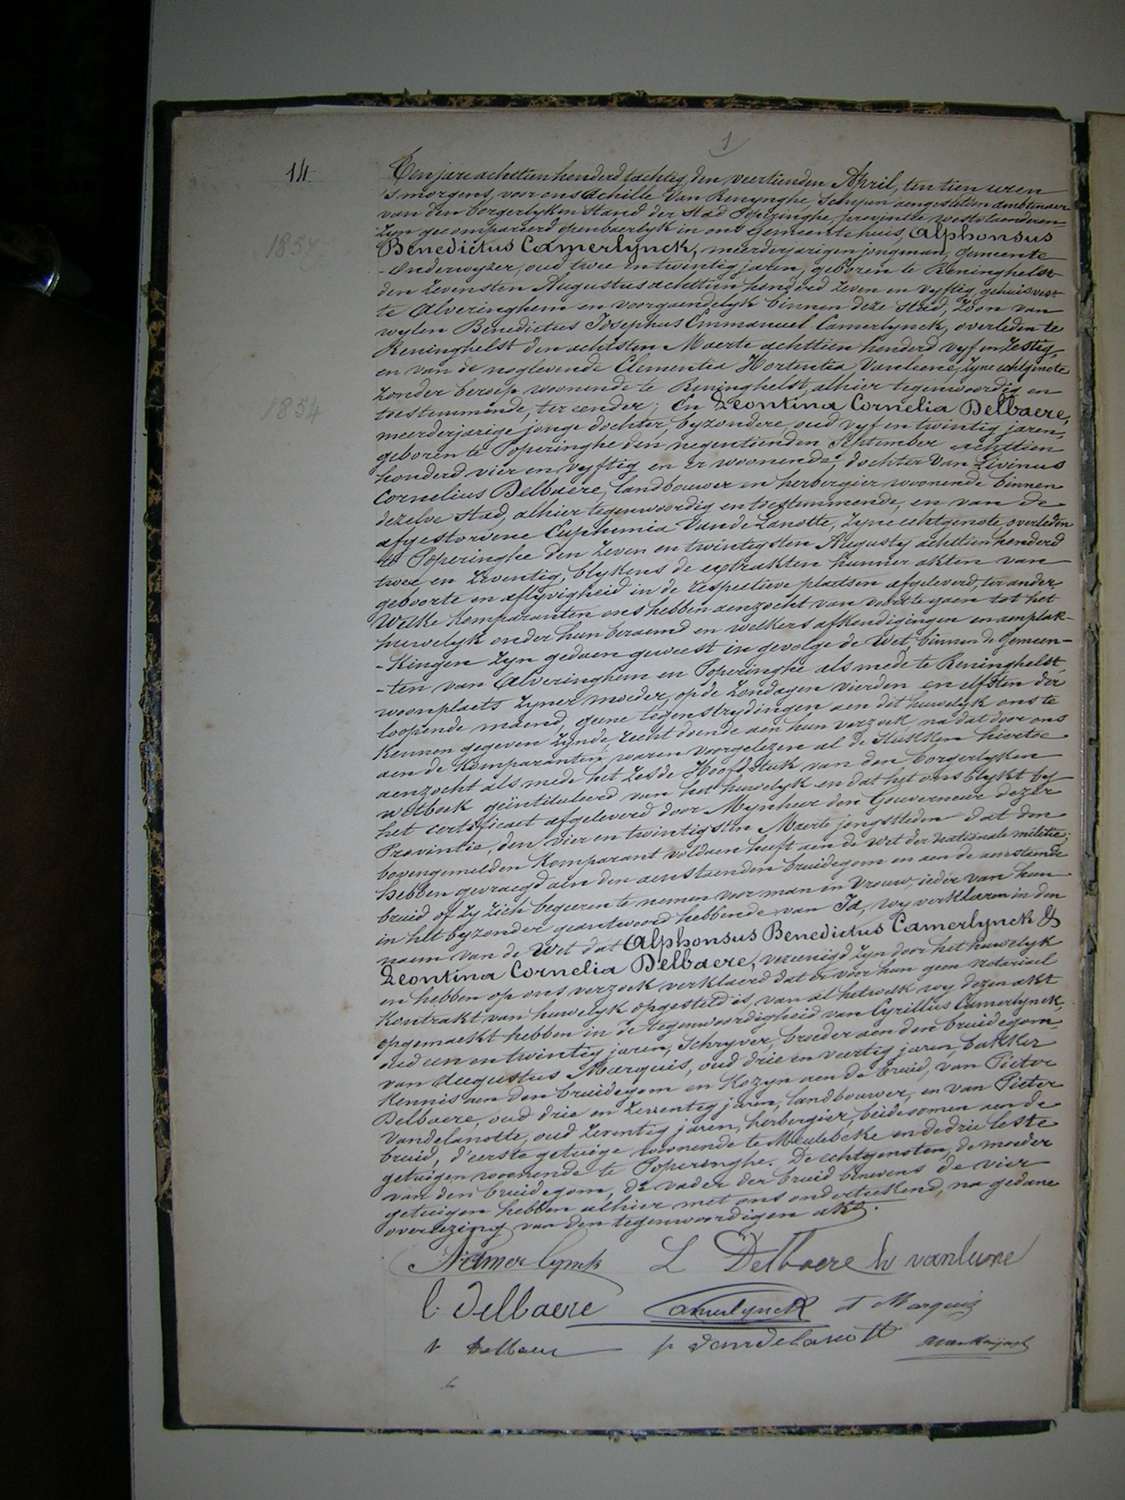 1
14
Ten jare achttien honderd tachtig, den veertienden April, ten tien uren
's morgens, voor ons Achille Van Renynghe, Schepen aengestelden ambtenaer
van den borgerlyken Stand der Stad Poperinghe, provintie westvlaenderen
zyn gecompareerd openbaerlyk in ons Gemeentehuis, Alphonsus
1857
Benedictus Camerlynck, meerderjarigen jongman, Gemeente
Onderwyzer, oud twee en twintig jaren, geboren te Reninghelst
den zevensten Augustus achttien honderd zeven en vyftig, gehuisvest
te Alveringhem en voorgaendelyk binnen deze Stad, Zoon van
wylen Benedictus Josephus Emmanuel Camerlynck, overleden te
Reninghelst den achtsten Maerte achttien honderd vyf en Zestig,
en van de noglevende Clementia Hortentia Vanleene, zyne echtgenote
zonder beroep woonende te Reninghelst, alhier tegenwoordig en
1854
toestemmende, ter eender; En Leontina Cornelia Delbaere,
meerderjarige jonge dochter, byzondere, oud vyf en twintig jaren,
geboren te Poperinghe den negentienden September achttien
honderd vier en vyftig en er woonende, dochter van Livinus
Cornelius Delbaere, landbouwer en herbergier woonende binnen
dezelve Stad, alhier tegenwoordig en toestemmende, en van de
afgestorvene Euphemia Vandelanotte, zyne echtgenote, overleden
te Poperinghe den zeven en twintigsten Augusty achttien honderd
twee en zeventig, blykens de extrakten hunner akten van
geboorte en aflyvigheid in de respectieve plaetsen afgeleverd, ter ander
Welke Komparanten ons hebben aenzocht van voorts te gaen tot het
huwelyk onder hun beraemd en welkers afkondigingen en aenplak-
-kingen zyn gedaen geweest in gevolge de Wet, binnen de Gemeen-
-ten van Alveringhem en Poperinghe als mede te Reninghelst,
woonplaets zyner moeder, op de Zondagen vierden en elfsten der
loopende maend, geene tegenstrydingen aen dit huwelyk ons te
kennen gegeven zynde, recht doende aen hun verzoek na dat door ons
aen de Komparanten waren voorgelezen al de Stukken hiertoe
aenzocht als mede het zesde Hoofdstuk van den borgerlyken
wetboek geintituleerd van het huwelyk en dat het ons blykt by
het certificaet afgeleverd door Mynheer den Gouverneur dezer
Provintie, den vier en twintigsten Maerte jongstleden dat den
bovengemelden Komparant voldaen heeft aen de wet der nationale militie;
Hebben gevraegd aen den aenstaenden bruidegom en aen de aenstaende
bruid of zy zich begeeren te nemen voor man en vrouw, ieder van hun
in het byzonder geantwoord hebbende van Ja, wy verklaren in den
naem van de Wet dat Alphonsus Benedictus Camerlynck &
Leontina Cornelia Delbaere, vereenigd zyn door het huwelyk
en hebben op ons verzoek verklaerd dat er voor hun geen notariael
Kontrakt van huwelyk opgesteld is, van al hetwelk wy dezen akt
opgemaekt hebben in de tegenwoordigheid van Cyrillus Camerlynck,
oud een en twintig jaren, Schryver, broeder aen den bruidegom,
van Augustus Marquis, oud drie en veertig jaren, bakker
Kennis aen den bruidegom en Kozyn aen de bruid, van Pieter
Delbaere, oud drie en zeventig jaren, landbouwer, en van Pieter
Vandelanotte, oud zeventig jaren, herbergier, beide oomen aen de
bruid, d'eerste getuige woonende te Meulebeke en de drie leste
getuigen woonende te Poperinghe. De echtgenoten, de moeder
van den bruidegom, de vader der bruid benevens de vier
getuigen hebben alhier met ons onderteekend, na gedane
overlezing van den tegenwoordigen akt.
Camerlynck L Delbaere h vanleene
l. Delbaere Camerlynck A Marquis
p Delbaere p vandelanotte